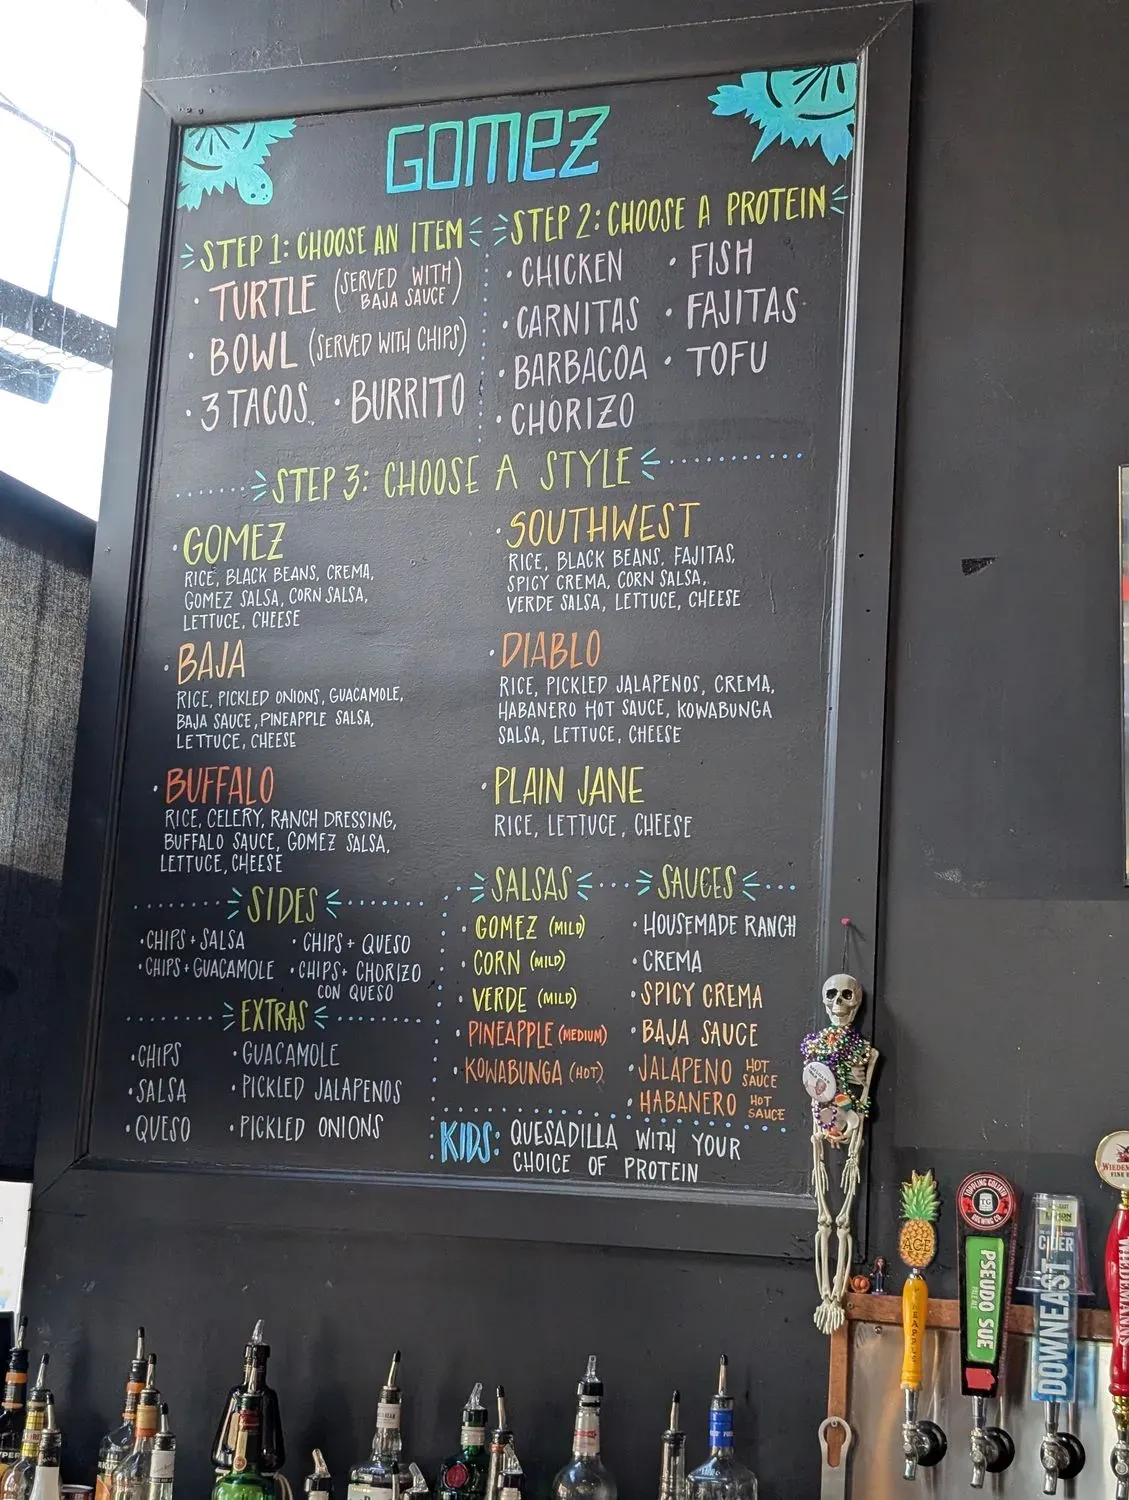 GOMEZ
STEP 1: CHOOSE AN ITEM
· TURTLE (SERVED WITH
BAJA SAUCE)
· BOWL (SERVED WITH CHIPS)
· 3 TACOS · BURRITO
STEP 2: CHOOSE A PROTEIN
· CHICKEN · FISH
· CARNITAS · FAJITAS
· BARBACOA · TOFU
· CHORIZO
STEP 3: CHOOSE A STYLE
· GOMEZ
RICE, BLACK BEANS, CREMA,
GOMEZ SALSA, CORN SALSA,
LETTUCE, CHEESE
· SOUTHWEST
RICE, BLACK BEANS, FAJITAS,
SPICY CREMA, CORN SALSA,
VERDE SALSA, LETTUCE, CHEESE
· BAJA
RICE, PICKLED ONIONS, GUACAMOLE,
BAJA SAUCE, PINEAPPLE SALSA,
LETTUCE, CHEESE
· DIABLO
RICE, PICKLED JALAPENOS, CREMA,
HABANERO HOT SAUCE, KOWABUNGA
SALSA, LETTUCE, CHEESE
· BUFFALO
RICE, CELERY, RANCH DRESSING,
BUFFALO SAUCE, GOMEZ SALSA,
LETTUCE, CHEESE
· PLAIN JANE
RICE, LETTUCE, CHEESE
SIDES
· CHIPS + SALSA · CHIPS + QUESO
· CHIPS + GUACAMOLE · CHIPS + CHORIZO
CON QUESO
EXTRAS
· CHIPS · GUACAMOLE
· SALSA · PICKLED JALAPENOS
· QUESO · PICKLED ONIONS
SALSAS
· GOMEZ (MILD)
· CORN (MILD)
· VERDE (MILD)
· PINEAPPLE (MEDIUM)
· KOWABUNGA (HOT)
SAUCES
· HOUSEMADE RANCH
· CREMA
· SPICY CREMA
· BAJA SAUCE
· JALAPENO HOT
SAUCE
· HABANERO HOT
SAUCE
KIDS: QUESADILLA WITH YOUR
CHOICE OF PROTEIN
ACE
PINEAPPLE
TOPPLING GOLIATH
TG
BREWING CO.
PSEUDO SUE
PALE ALE
CIDER
DOWNEAST
WIEDEMANN'S